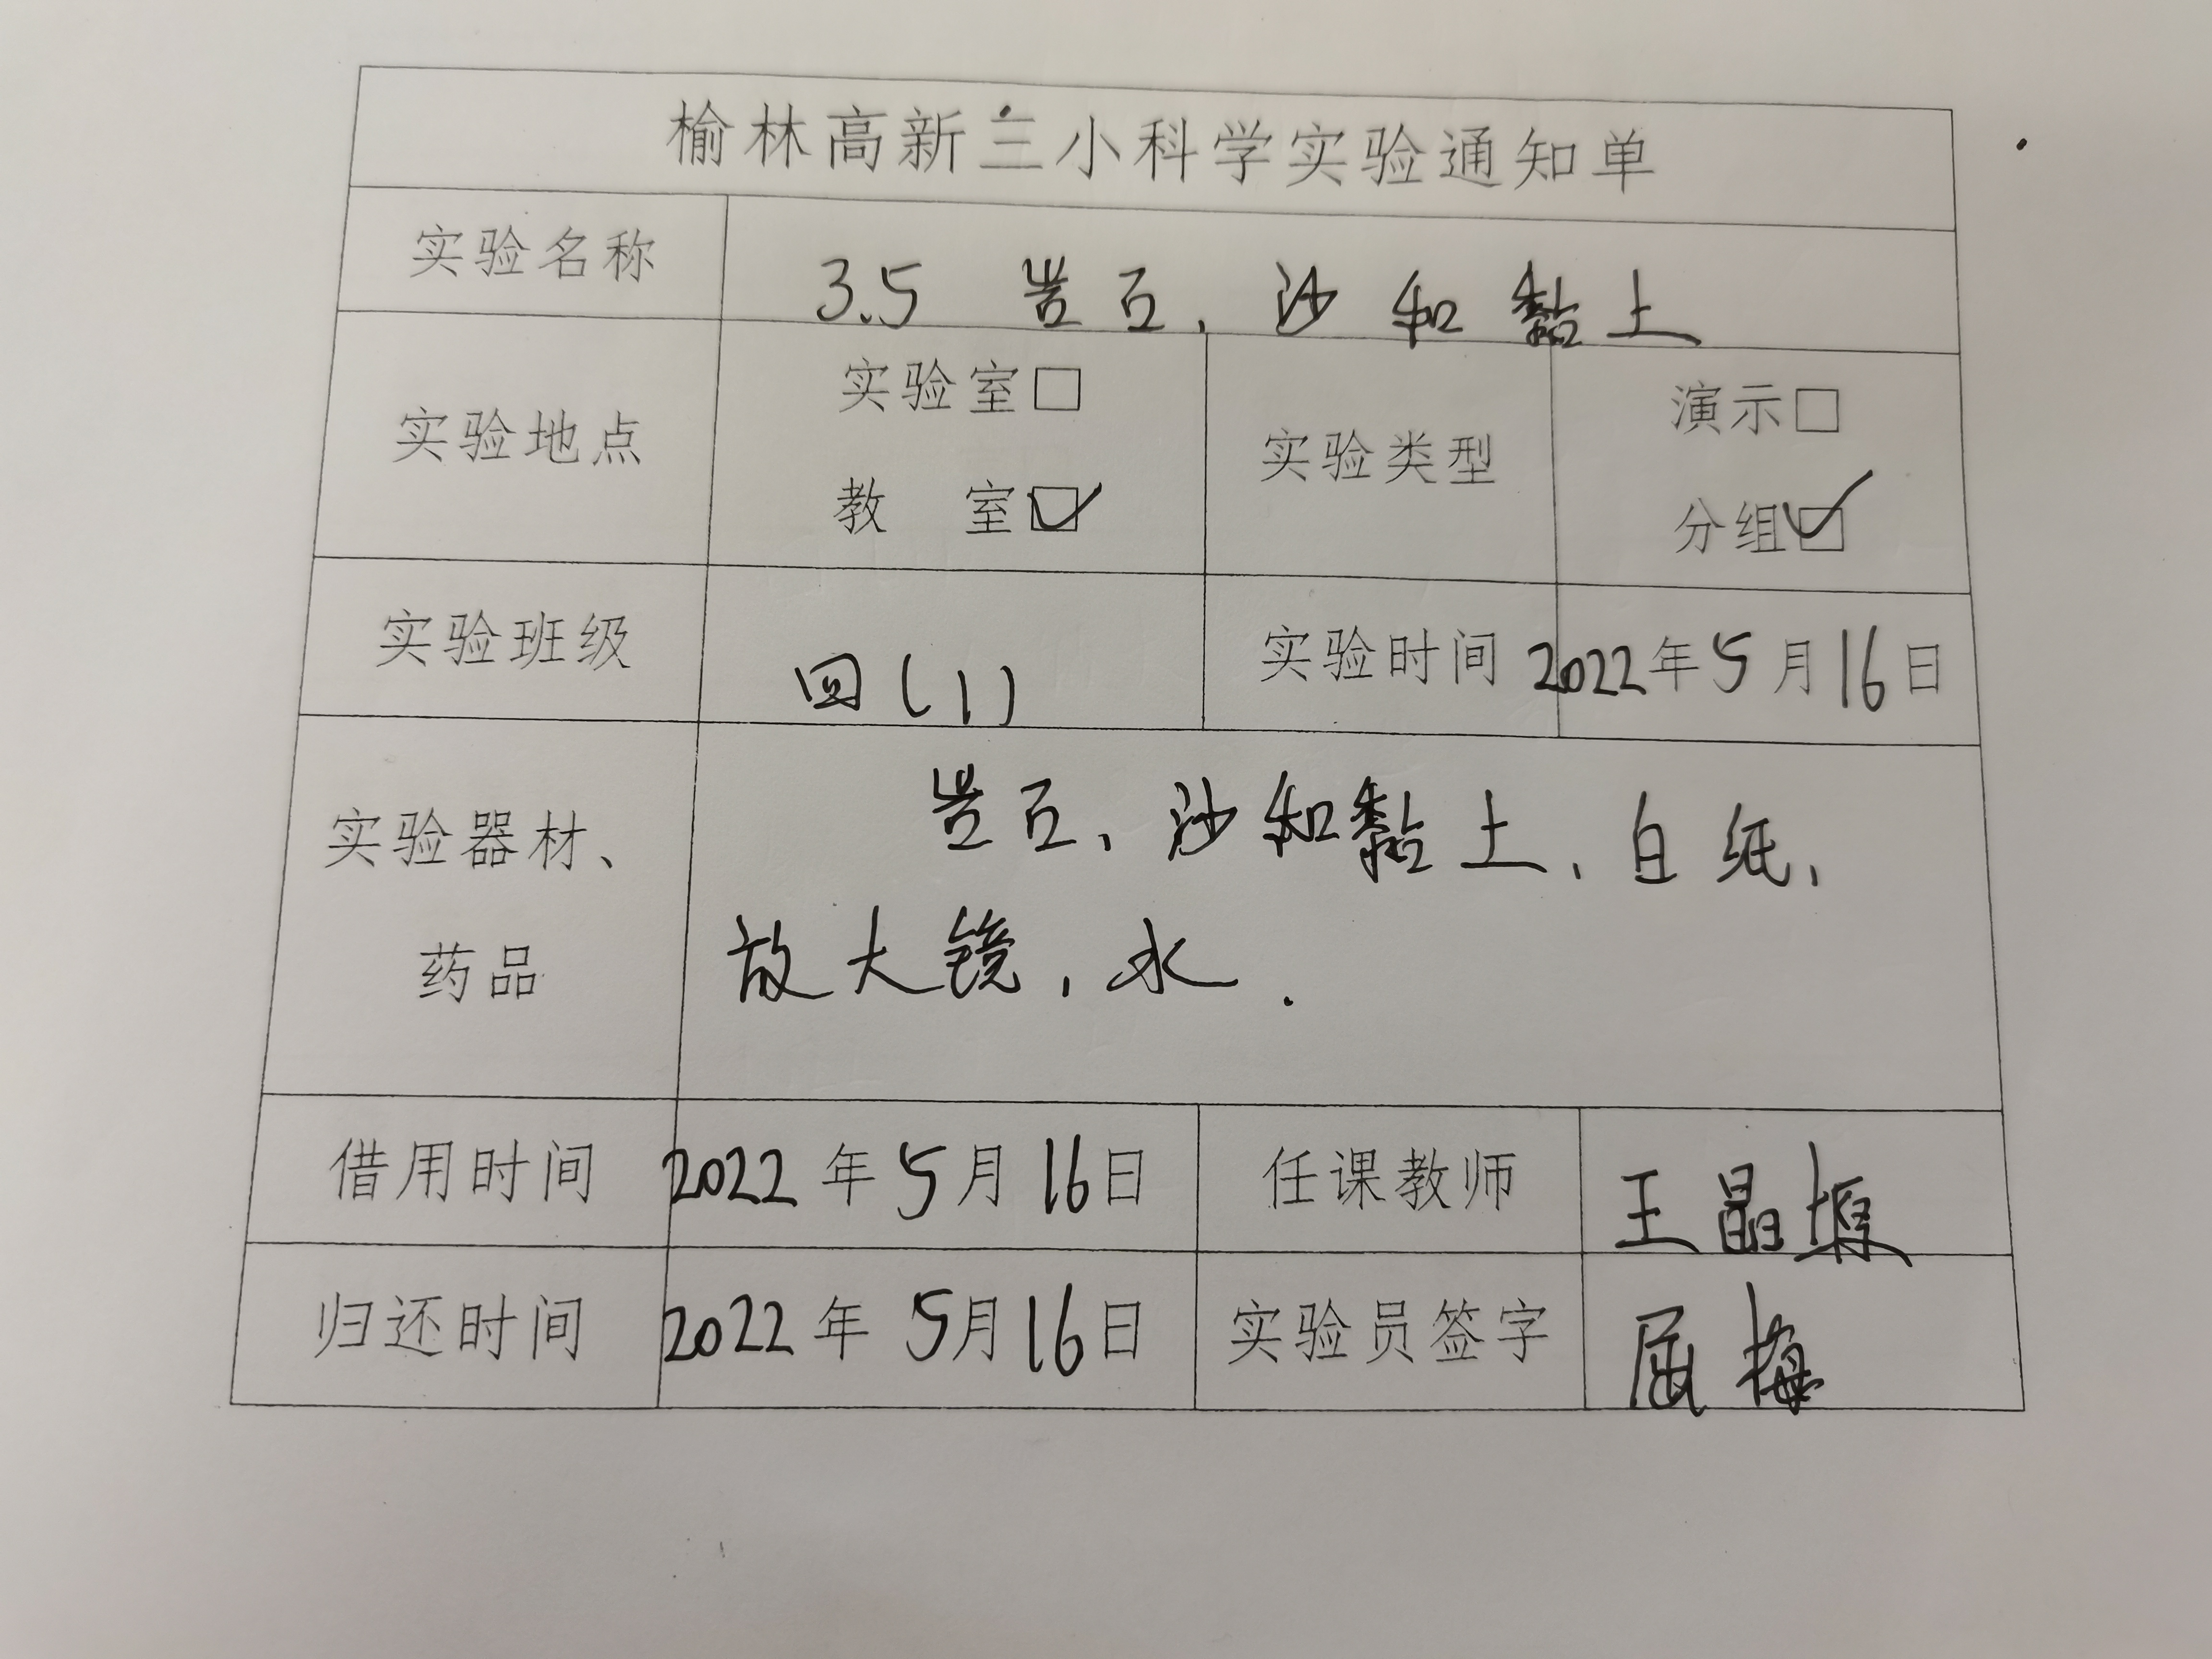 榆林高新三小科学实验通知单
实验名称 3.5 岩石、沙和黏土
实验地点 实验室□ 教 室☑ 实验类型 演示□ 分组☑
实验班级 四(1) 实验时间 2022年5月16日
实验器材、
药品
岩石、沙和黏土、白纸、
放大镜、水.
借用时间 2022年5月16日 任课教师 王晶堰
归还时间 2022年5月16日 实验员签字 屈梅